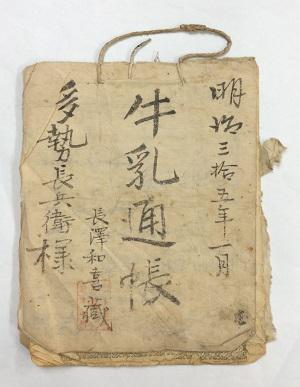 明治三拾五年十一月
牛乳通帳
長澤和喜藏
多勢長兵衛様